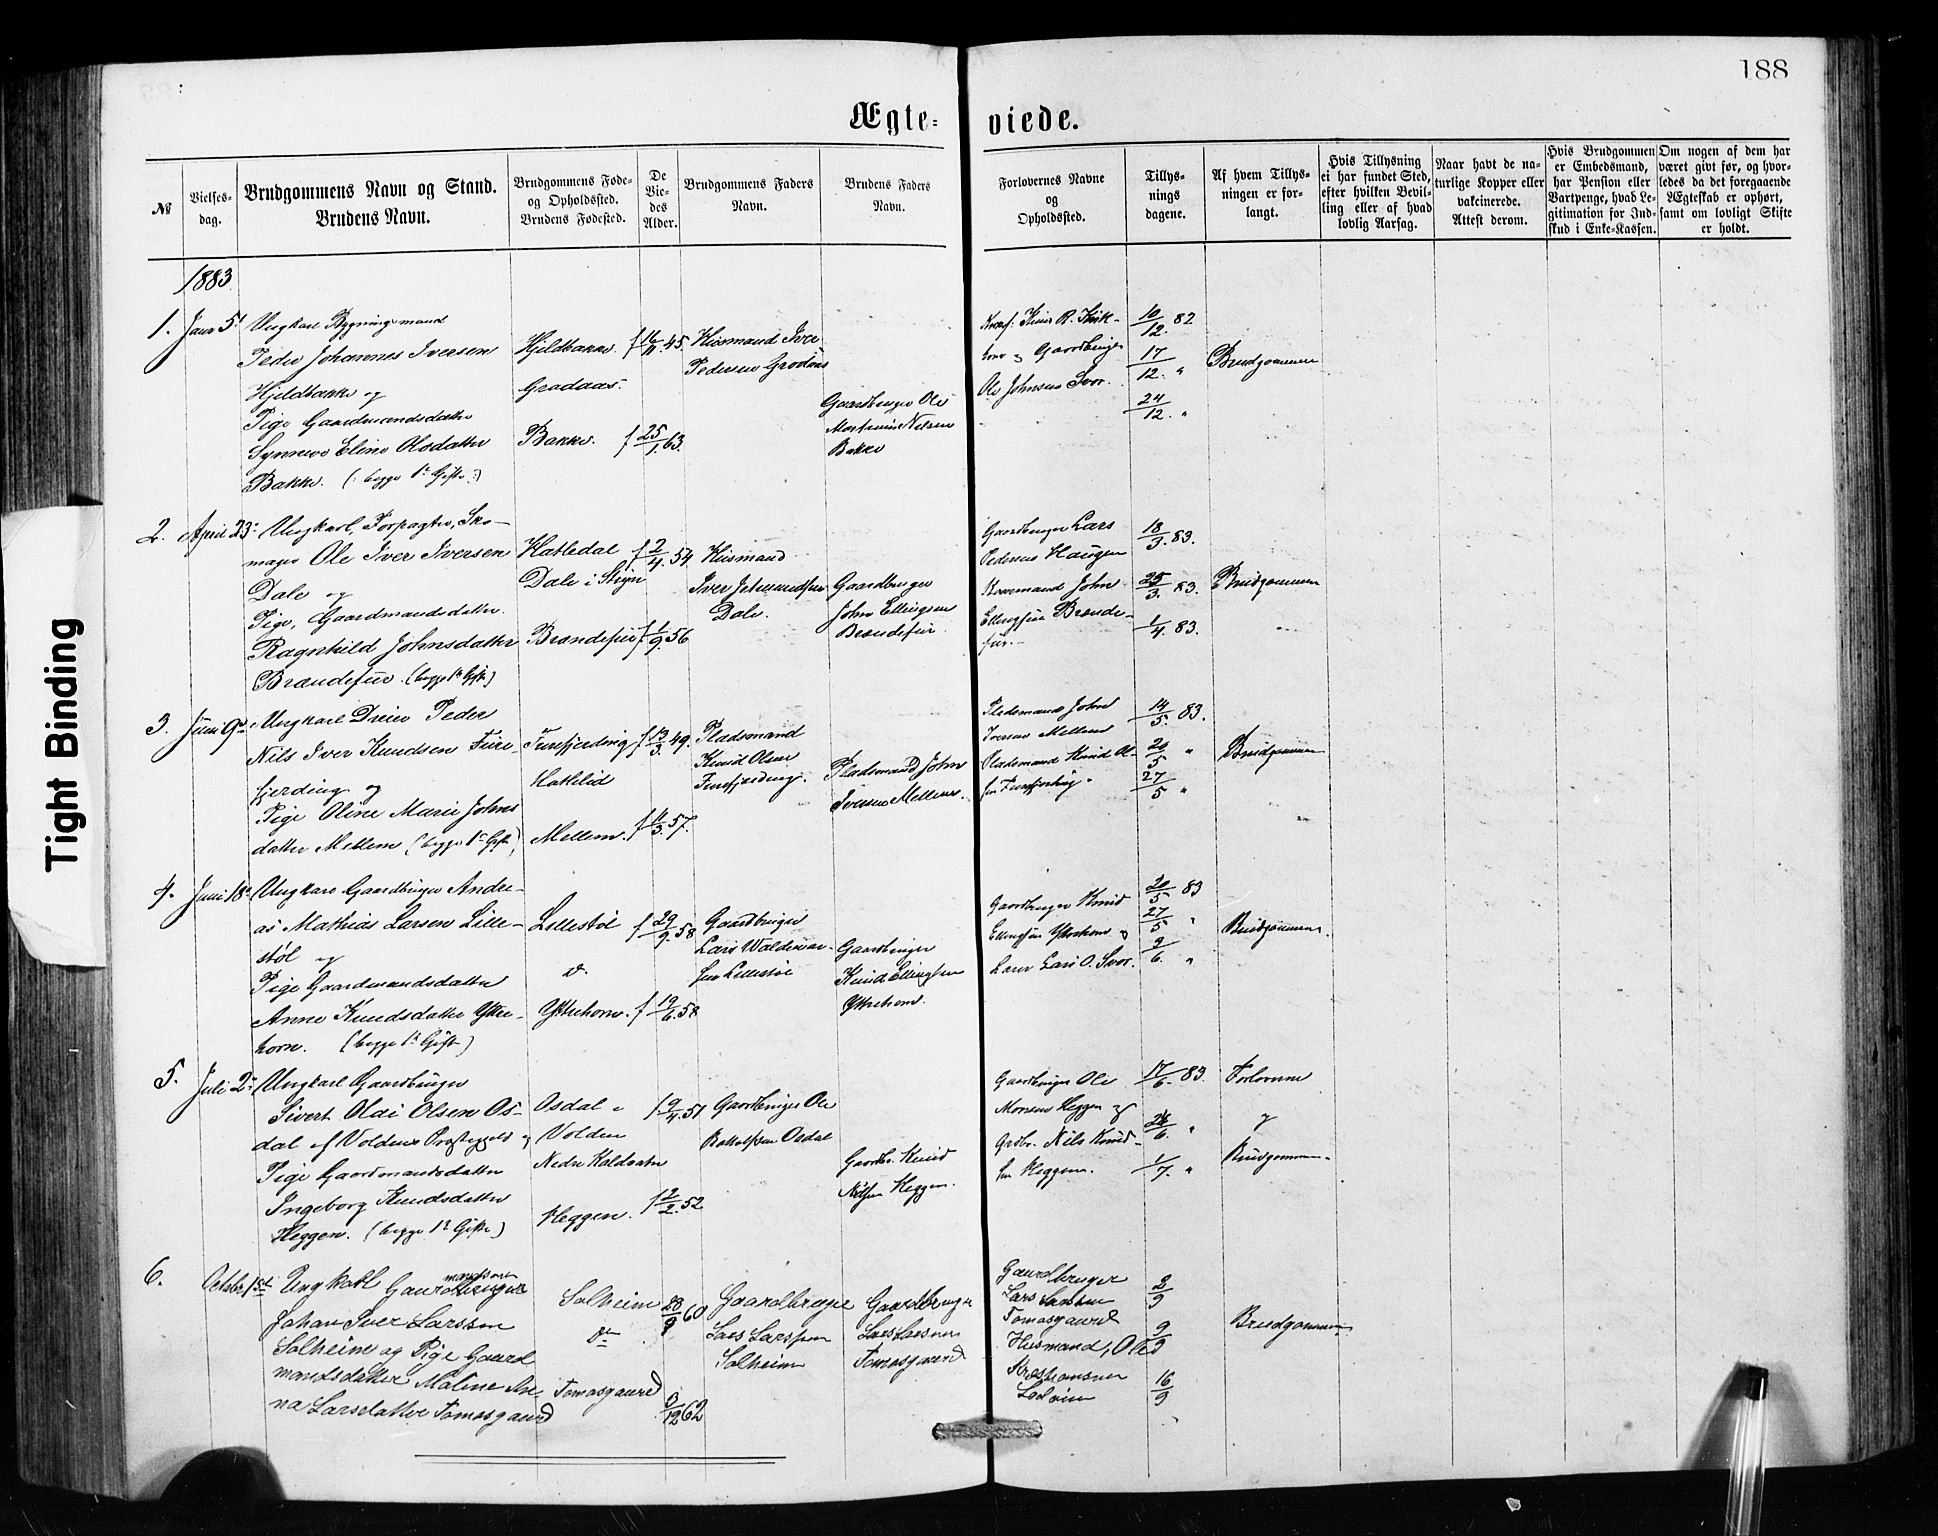 188
Ægte-
viede.
Tight Binding
№
Vielses-
dag.
Brudgommens Navn og Stand.
Brudens Navn.
Brudgommens Føde-
og Opholdssted.
Brudens Fødested.
De
Vie-
des
Alder.
Brudgommens Faders
Navn.
Brudens Faders
Navn.
Forlovernes Navne
og
Opholdssted.
Tillys-
nings
dagene.
Af hvem Tillys-
ningen er for-
langt.
Hvis Tillysning
ei har fundet Sted,
efter hvilken Bevil-
ling eller af hvad
lovlig Aarsag.
Naar havt de na-
turlige Kopper eller
vakcinerede.
Attest derom.
Hvis Brudgommen
er Embedsmand,
har Pension eller
Vartpenge, hvad Le-
gitimation for Ind-
skud i Enke-Kassen.
Om nogen af dem har
været givt før, og hvor-
ledes da det foregaaende
Ægteskab er ophørt,
samt om lovligt Skifte
er holdt.
1883.
1.
Janr 5t
Ungkarl Bygningsmand
Peder Johannes Iversen
Hjeldbakke og
Pige Gaardmandsdatter
Synneve Eline Olsdatter
Bakke. (: begge 1te Gifte :)
Hjeldbakke
Gradaas.
Bakke.
f 16/11 45.
f 25/1 63.
Husmand Iver
Pedersen
Gaardbruger Ole
Martinus Nilsen
Bakke
og Gaardbruger
Ole Johnsen Svor.
10/12. 82
17/12. "
24/12. "
Brudgommen
2.
April 23
Ungkarl, Forpagter, Sko-
mager Ole Iver Iversen
Dale og
Pige, Gaardmandsdatter
Ragnhild Johnsdatter
Brændefur. (begge 1te Gifte)
Hatledal
Dale i Stryn
Brændefur
f 2/4. 54
f 1/9. 56
Husmand
Iver
Dale.
Gaardbruger
John Ellingsen
Brændefur.
Gaardbruger Lars
Pedersen Haugen
John
Ellingsen Brænde-
fur.
18/3. 83.
25/3. 83.
1/4. 83.
Brudgommen
3.
Juni 9
Ungkarl Dreier Peder
Nils Iver Knudsen Fure-
fjerding og
Pige Oline Marie Johns
datter Mellem (begge 1te Gifte)
Furefjerding
Hatleid
Mellem.
f 13/3. 49.
f 11/3. 57.
Pladsmand
Knud Olsen
Furefjerding.
Pladsmand John
Iversen Mellem.
Pladsmand John
Iversen Mellem
Pladsmand Knud Ol-
sen Furefjerding
14/5. 83.
20/5 "
27/5 "
Brudgommen
4.
Juni 18
Ungkarl Gaardbruger Andre-
as Mathias Larsen Lille-
støl og
Pige Gaardmandsdatter
Anne Knudsdatter Ytre-
horn. (begge 1te Gifte)
Lillestøl
Ytrehorn.
f 29/9. 58
f 19/6. 58
Gaardbruger
Lars Waldemar-
sen Lillestøl
Gaardbruger
Knud Ellingsen
Ytrehorn.
Gaardbruger Knud
Ellingsen Ytrehorn og
Lærer Lars O. Svor.
20/5 83
27/5 "
Brudgommen.
5.
Juli 2
Ungkarl Gaardbruger
Sivert Olai Olsen Os-
dal af Voldens Præstegjeld og
Pige Gaardmandsdatter
Ingeborg Knudsdatter
Heggen. (begge 1te Gifte)
Osdal i
Volden
Nedre
Heggen.
f 9/4. 51
f 2/2. 52
Gaardbruger Ole
Osdal
Gaardbr. Knud
Nilsen Heggen.
Gaardbruger Ole
Monsen Heggen og
Grdbr. Nils Knud-
sen Heggen.
17/6. 83.
24/6. "
1/7. "
Forloverne
og
Brudgommen.
6.
Octobr 1st
Ungkarl Gaard
Johan Iver Larssen
Solheim og Pige Gaard
mandsdatter Maline An-
na Larsdatter Tomasgaard
Solheim
Tomasgaard
28/9 60
3/12 62
Gaardbruger
Lars Larssen
Solheim
Gaardbruger
Lars Larssen
Tomasgaard
Gaardbruger
Lars Larssen
Tomasgaard
Husmand, Ole
2/9
9/9
16/9
Brudgommen